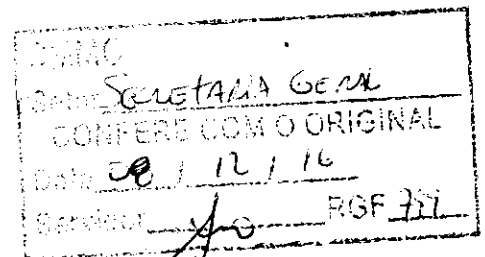 Setor Secretaria Geral
CONFERE COM O ORIGINAL
Data 08 / 12 / 16
Servidor RGF